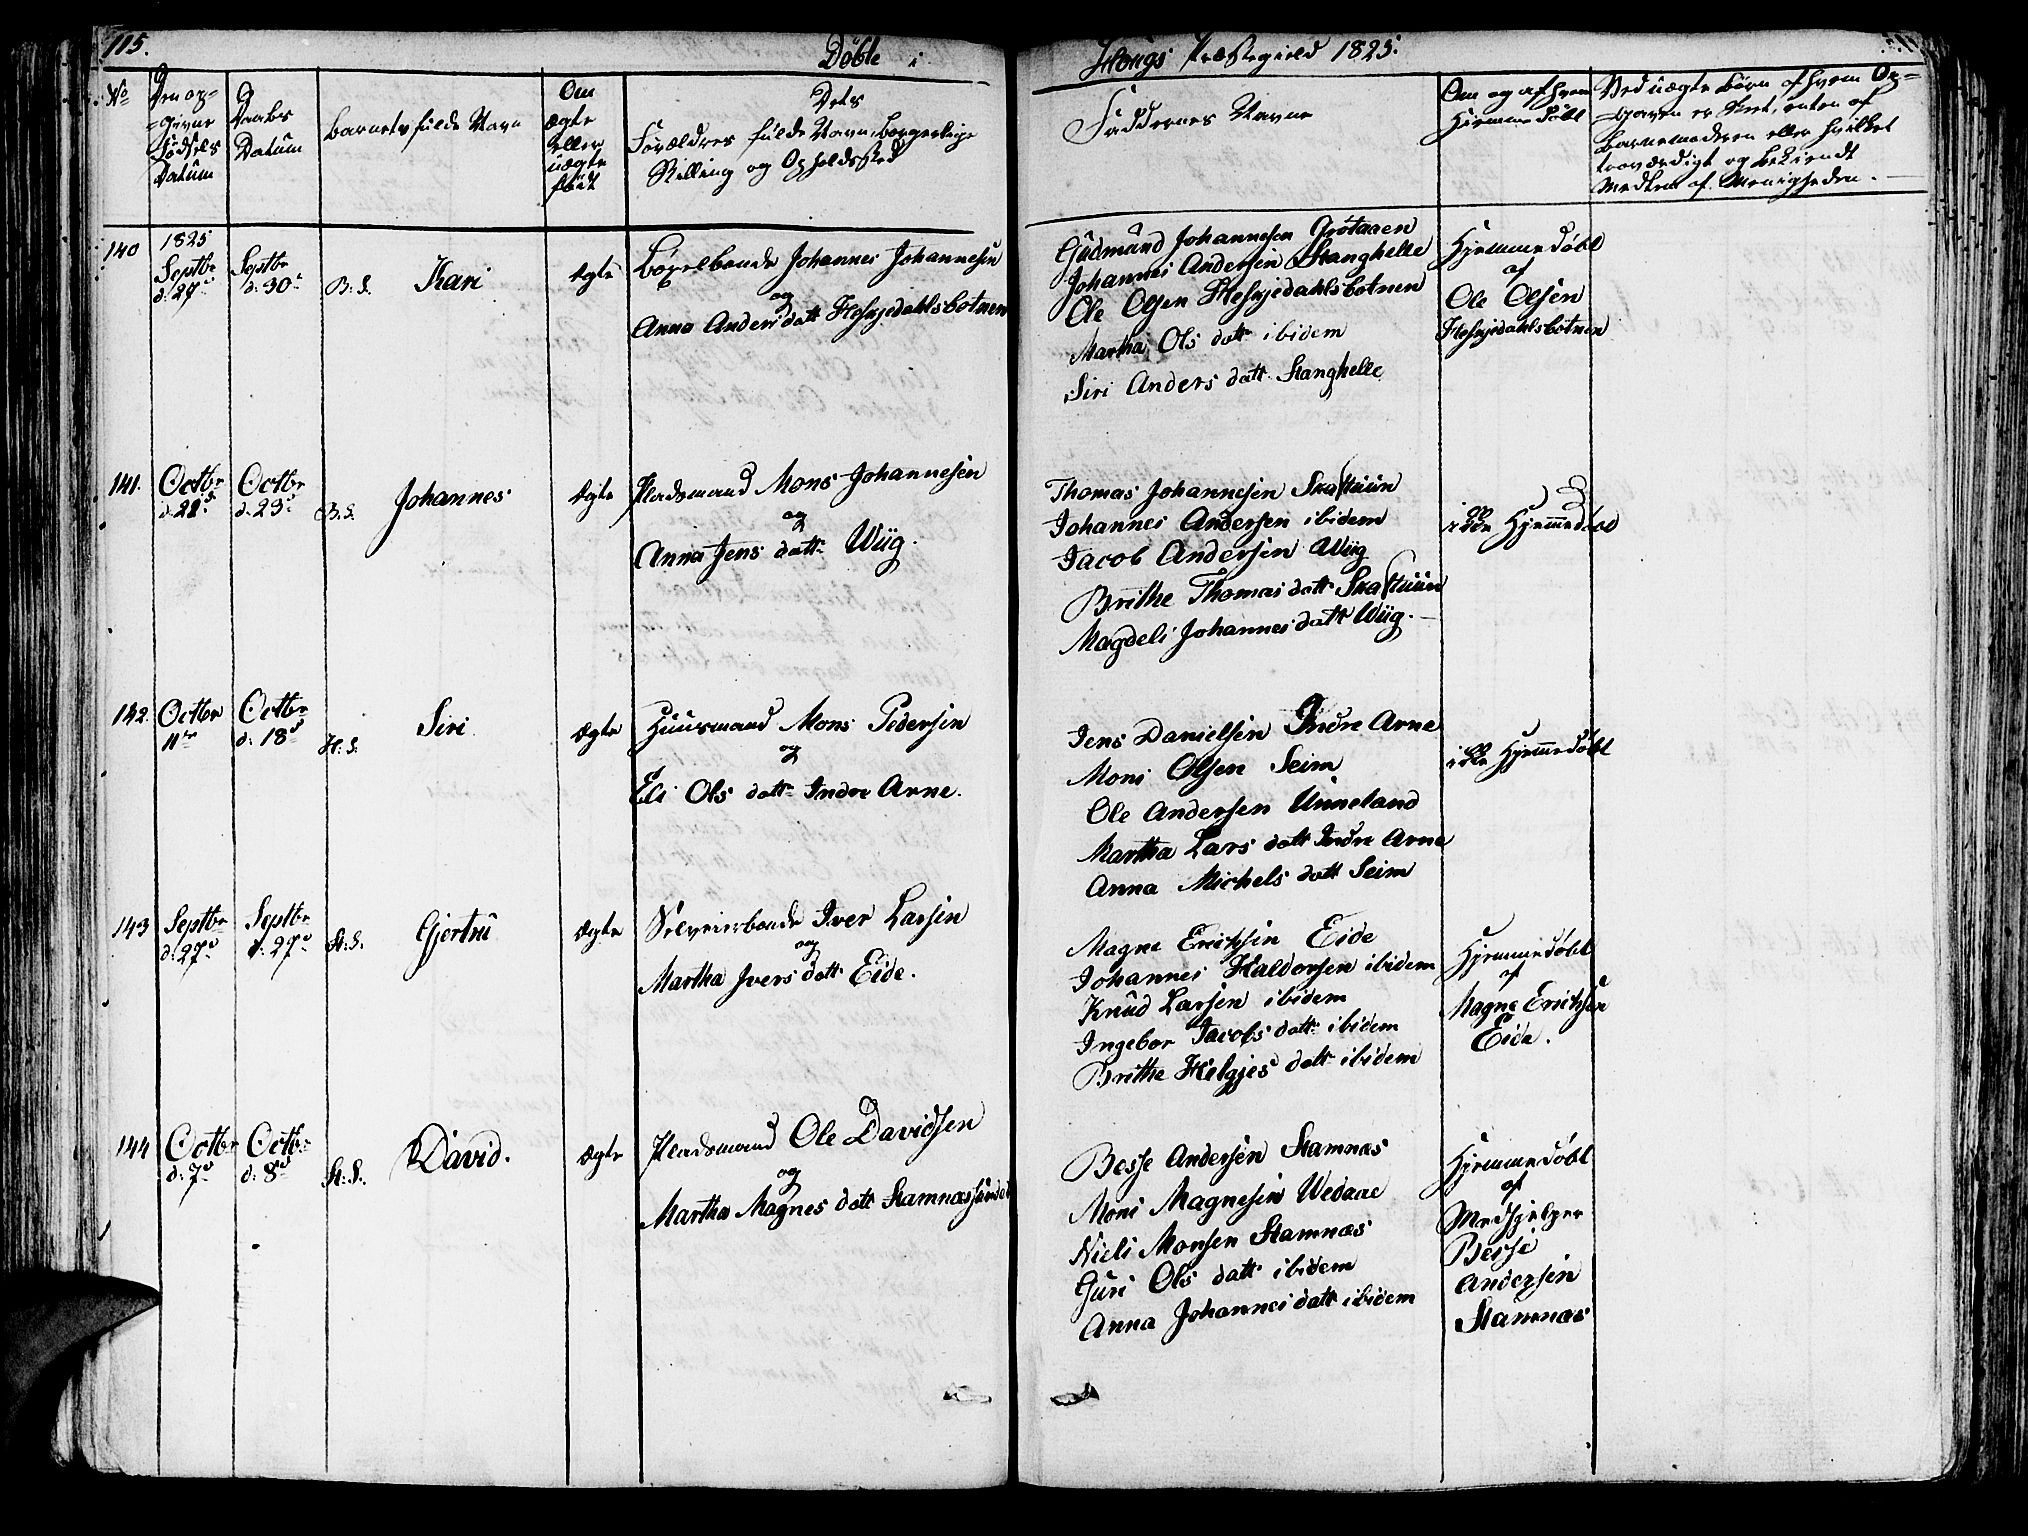 115.
Døbte i Hougs Præstegield 1825.
No
Den op-
-givne
Fødsels
Datum
Daabs
Datum
Barnets fulde Navn
Om
ægte
eller
uægte
født
Dets
Forældres fulde Navn, Borgerlige
Stilling og Opholdssted
Faddernes Navne
Om og af hvem
Hiemmedøbt
Ved uægte Børn af hvem Op-
-gaven er skeet, enten af
Barnemoderen eller hvilket
troværdigt og bekiendt
Medlem af Menigheden.
140
1825
Septbr
d: 27d
Septbr
d: 30d
B. S.
Kari
Ægte
Bøxelbonde Johannes Johannesen
og
Anna Andersdatt Hesjedahlsbotnen
Gudmund Johannesen Grøtaaen
Johannes Andersen Stanghelle
Ole Olsen Hesjedahlsbotnen
Martha Ols datt ibidem
Siri Anders datt Stanghelle
Hjemmedøbt
af
Ole Olsen
Hesjedahlsbotnen
141.
Octbr
d. 21d
Octbr
d. 23d
B. S.
Johannes
Ægte
Pladsmand Mons Johannesen
og
Anna Jens datt Wiig.
Thomas Johannesen Skaftuun
Johannes Andersen ibidem
Jacob Andersen Wiig
Brithe Thomas datt Skaftuun
Magdeli Johannes datt Wiig.
ikke Hjemmedøbt
142.
Octbr
11te
Octbr
d: 18d
H: S.
Siri
Ægte
Huusmand Mons Pedersen
og
Eli Ols datt Indre Arne.
Jens Danielsen Indre Arne
Mons Olsen Seim
Ole Andersen Unneland
Martha Lars datt Indre Arne
Anna Michels datt Seim
ikke Hjemmedøbt
143
Septbr
d: 27d
Septbr
d: 27d
St: S.
Gjertru
Ægte
Selveierbonde Iver Larsen
og
Martha Ivers datt Eide.
Magne Erichsen Eide
Johannes Haldorsen ibidem
Knud Larsen ibidem
Ingebor Jacobs datt ibidem
Brithe Helgjes datt ibidem
Hjemmedøbt
af
Magne Erichsen
Eide.
144
Octbr
d: 7d
Octbr
d: 8d
St: S.
David.
Ægte
Pladsmand Ole Davidsen
og
Martha Magnes datt Stamnæssundet
Besse Andersen Stamnæs
Mons Magnesen Wedaae
Niels Monsen Stamnæs
Guri Ols datt ibidem
Anna Johannes datt ibidem
Hjemmedøbt
af
Medhjelper
Besse
Andersen
Stamnæs